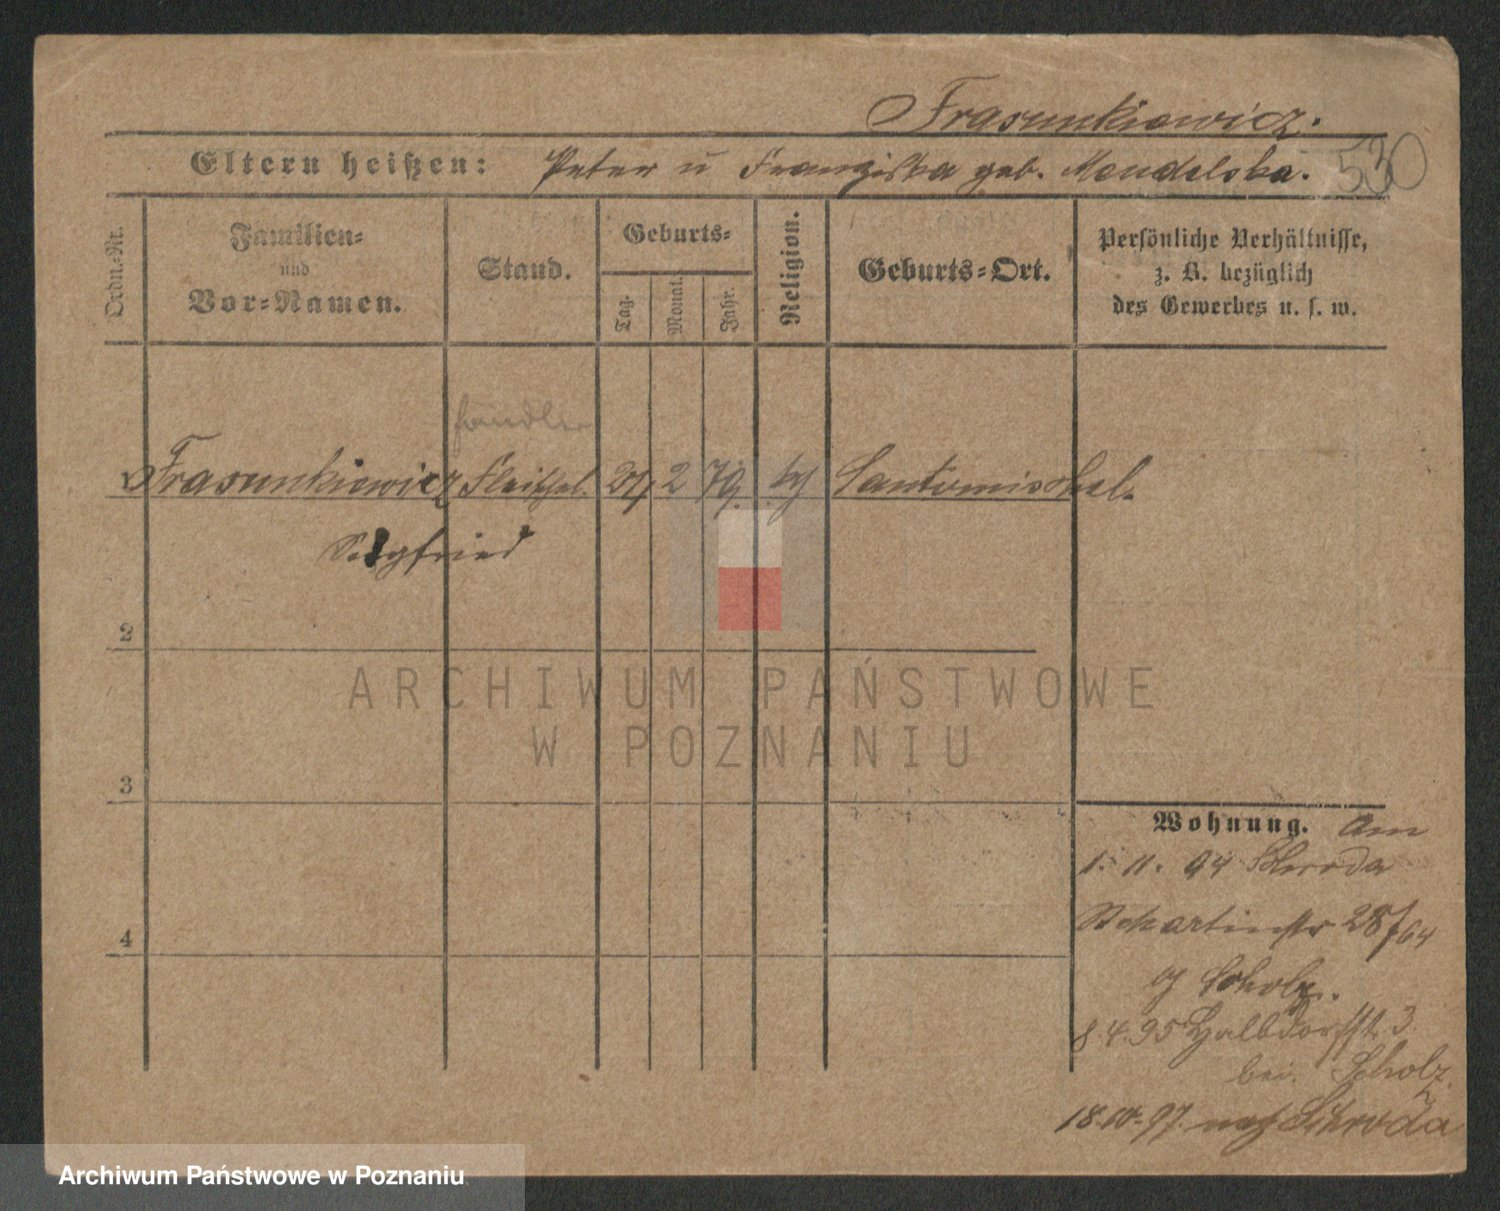 Frasunkiewicz.
Eltern heißen: Peter u Franziska geb. Mondelska. 530
Ordn.-Nr.
Familien-
und
Vor-Namen.
Stand.
Geburts-
Tag.
Monat.
Jahr.
Religion.
Geburts-Ort.
Persönliche Verhältnisse,
z. B. bezüglich
des Gewerbes u. s. w.
händler
Frasunkiewicz 2 79 Santomischel.
Siegfried
2
3
4
ARCHIWUM PAŃSTWOWE
W POZNANIU
Wohnung. Am
1. 11. 94 Schroda
St Martinstr 28/64
Scholz.
8.4.95 Halbdorfstr. 3
bei Scholz
18.10.97. nach Schroda
Archiwum Państwowe w Poznaniu